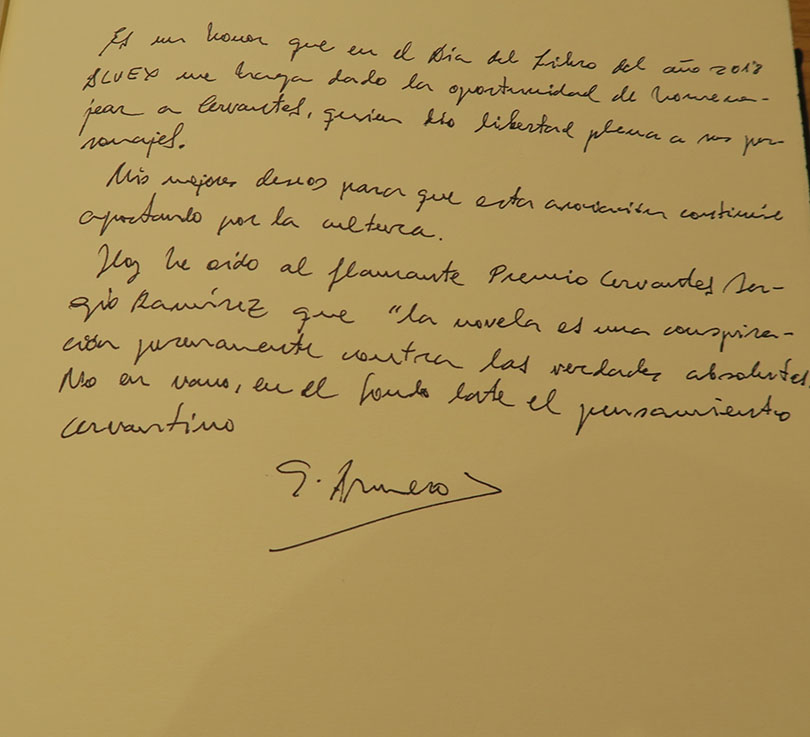 Es un honor que en el Día del Libro del año 2018
ALUEX me haya dado la oportunidad de homena-
jear a Cervantes, quien dio libertad plena a sus per-
sonajes.
Mis mejores deseos para que esta asociación continúe
apostando por la cultura.
Hoy he oído al flamante Premio Cervantes Ser-
gio Ramírez que "la novela es una conspira-
ción permanente contra las verdades absolutas.
No en vano, en el fondo late el pensamiento
cervantino